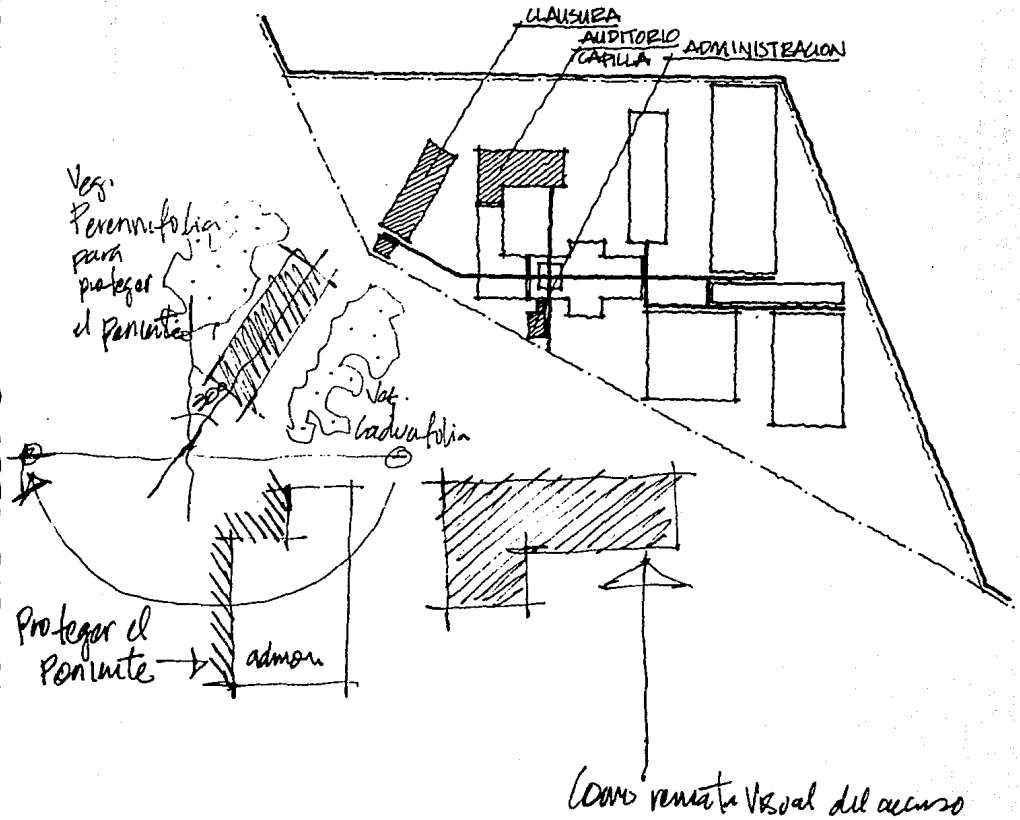 CLAUSURA
AUDITORIO
CAPILLA
ADMINISTRACION
Veg.
Perennifolia
para
proteger
el poniente
30°
Veg.
Caducifolia
Proteger el
Poniente
admon.
Como remate Visual del acceso